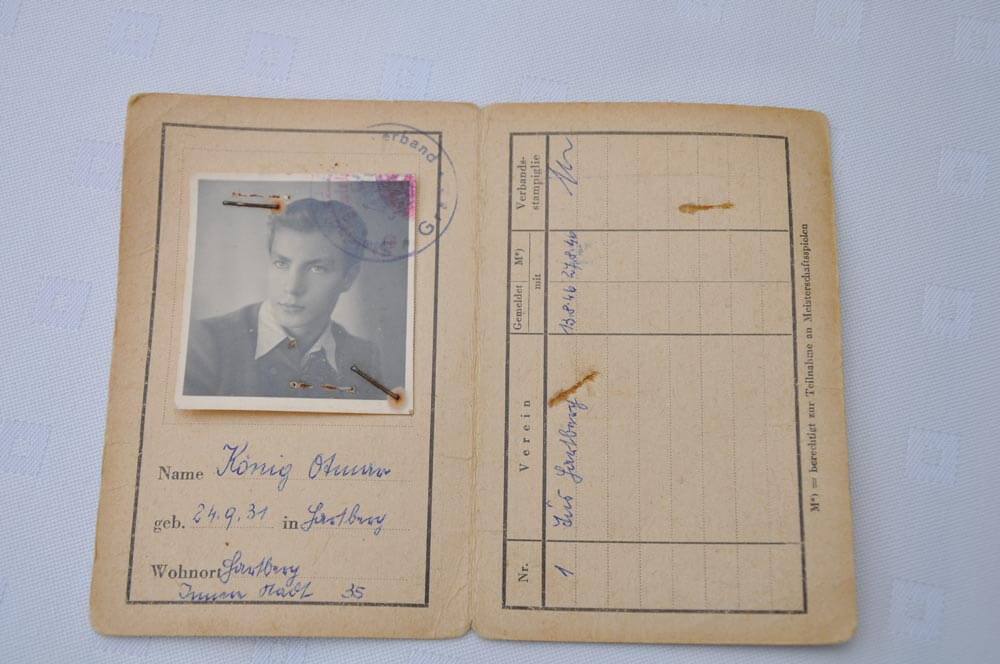 erband
Gra
Name König Otmar
geb. 24.9.31 in Hartberg
Wohnort Hartberg
Innere Stadt 35
Nr.
Verein
Gemeldet M*)
mit
Verbands-
stampiglie
1 Hartberg 13.8.46 27.8.46
M*) = berechtigt zur Teilnahme an Meisterschaftsspielen